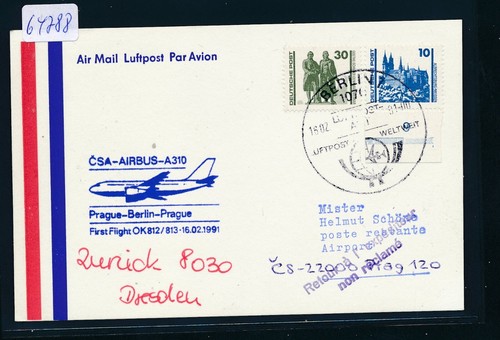 64788
Air Mail Luftpost Par Avion
DEUTSCHE POST
30
DEUTSCHE POST
10
BERLIN
1070
16.02.
91-00
LUFTPOST
WELTWEIT
ČSA-AIRBUS-A310
Prague-Berlin-Prague
First Flight OK 812/813-16.02.1991
Mister
Helmut Schöne
poste restante
Airport
ČS-22000 Prag 120
Retour à l'expéditeur
non réclamé
zurück 8030
Dresden